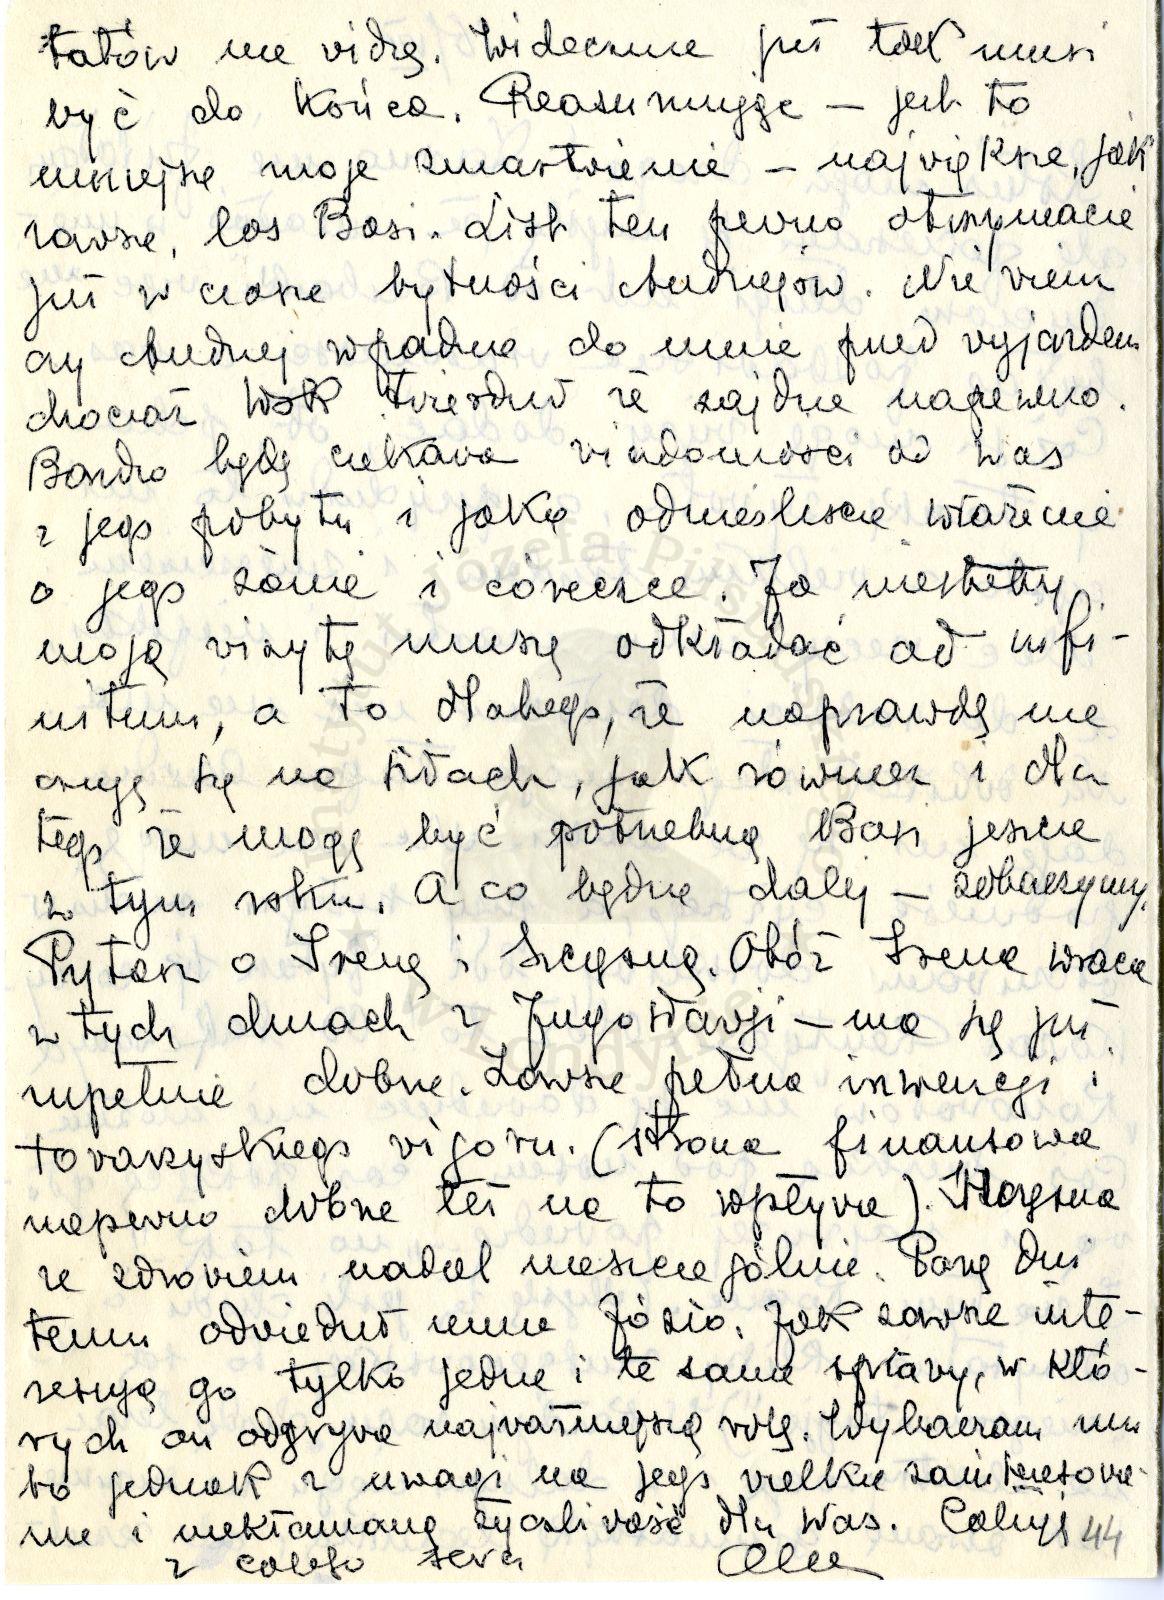 tatów nie widzę. Widocznie już tak musi
być do końca. Reasumując – jest to
mniejsze moje zmartwienie – największe, jak
zawsze, los Basi. List ten pewno otrzymacie
już w czasie bytności Andrzejów. Nie wiem
czy Andrzej wpadnie do mnie przed wyjazdem
chociaż twierdził że zajdzie napewno.
Bardzo będę ciekawa wiadomości od Was
z jego pobytu i jakie odnieśliście wrażenie
o jego żonie i córeczce. Ja niestety
moją wizytę muszę odkładać ad infi-
nitum, a to dlatego, że naprawdę nie
czuję się na siłach, jak również i dla
tego że mogę być potrzebną Basi jeszcze
w tym roku. A co będzie dalej – zobaczymy.
Pytasz o Irenę i Grażynę. Otóż Irena wraca
w tych dniach z Jugosławji – ma się już
zupełnie dobrze. Zawsze pełna inwencji i
towarzyskiego wigoru. (strona finansowa
napewno dobrze też na to wpływa).
ze zdrowiem nadal nieszczególnie. Parę dni
temu odwiedził mnie Józio. Jak zawsze inte-
resują go tylko jedne i te same sprawy, w któ-
rych on odgrywa najważniejszą rolę. Wybaczam mu
to jednak z uwagi na jego wielkie zainteresowa-
nie i niekłamaną życzliwość dla Was. Całuję 44
z całego serca
Instytut Józefa Piłsudskiego
w Londynie